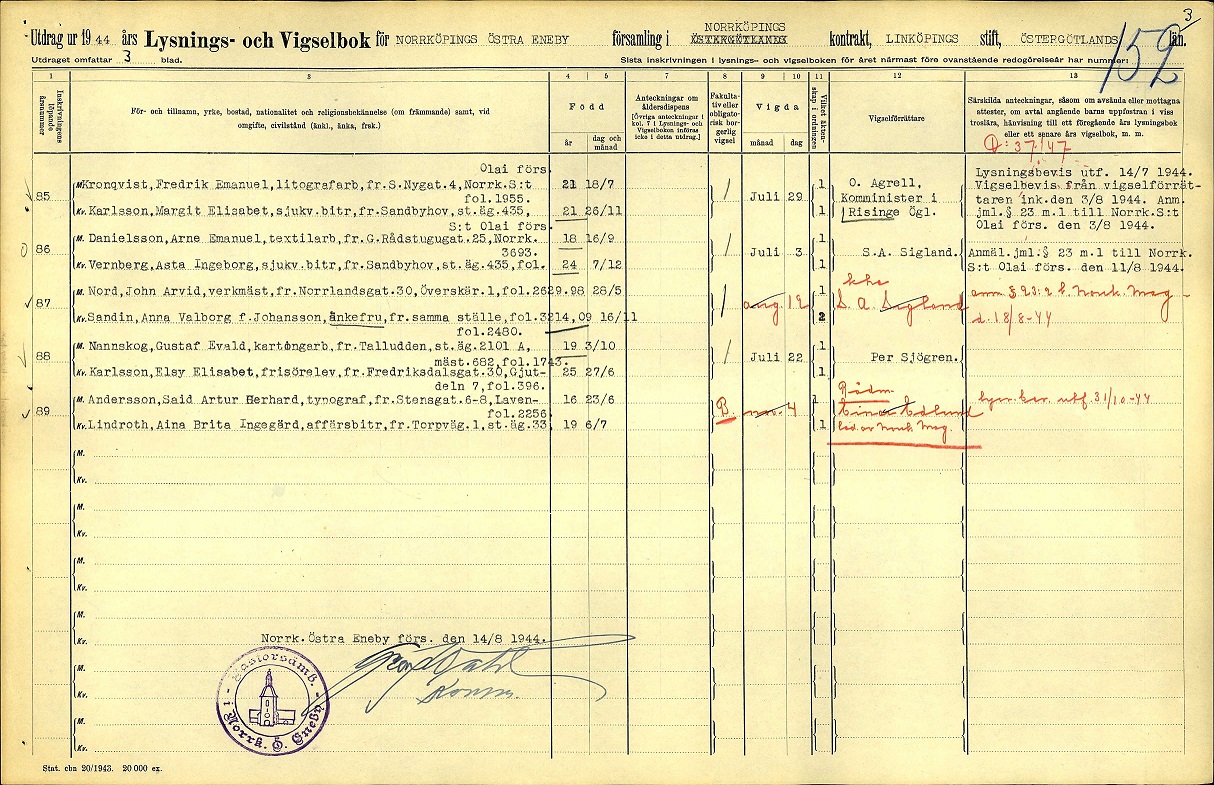 3
Utdrag ur 1944 års Lysnings- och Vigselbok för NORRKÖPINGS ÖSTRA ENEBY församling i NORRKÖPINGS ÖSTERGÖTLANDS kontrakt, LINKÖPINGS stift, ÖSTERGÖTLANDS län.
152
Utdraget omfattar 3 blad.
Sista inskrivningen i lysnings- och vigselboken för året närmast före ovanstående redogörelseår har nummer:
1 3 4 5 7 8 9 10 11 12 13
Inskrivningens löpande årsnummer
För- och tillnamn, yrke, bostad, nationalitet och religionsbekännelse (om främmande) samt, vid
omgifte, civilstånd (änkl., änka, frsk.)
Född
år
dag och månad
Anteckningar om
åldersdispens
[Övriga anteckningar i
kol. 7 i Lysnings- och
Vigselboken införas
icke i detta utdrag.]
Fakulta-
tiv eller
obligato-
risk bor-
gerlig
vigsel
Vigda
månad
dag
Vilket äkten-
skap i ordningen
Vigselförrättare
Särskilda anteckningar, såsom om avsända eller mottagna
attester, om avtal angående barns uppfostran i viss
troslära, hänvisning till ett föregående års lysningsbok
eller ett senare års vigselbok, m. m.
D: 37/47
85
Olai förs.
M. Kronqvist, Fredrik Emanuel, litografarb, fr. S. Nygat. 4, Norrk. S:t 21 18/7
fol. 1955.
Kv. Karlsson, Margit Elisabet, sjukv.bitr, fr. Sandbyhov, st.äg. 435, 21 26/11
/ Juli 29 1 1
O. Agrell,
Komminister i
Risinge Ögl.
Lysningsbevis utf. 14/7 1944.
Vigselbevis från vigselförrät-
taren ink. den 3/8 1944. Anm.
jml. § 23 m.l till Norrk. S:t
Olai förs. den 3/8 1944.
86
S:t Olai förs.
M. Danielsson, Arne Emanuel, textilarb, fr. G. Rådstugugat. 25, Norrk. 18 16/9
3693.
Kv. Vernberg, Asta Ingeborg, sjukv.bitr, fr. Sandbyhov, st.äg. 435, fol. 24 7/12
/ Juli 3 1 1
S.A. Sigland.
Anmäl. jml. § 23 m.l till Norrk.
S:t Olai förs. den 11/8 1944.
87
M. Nord, John Arvid, verkmäst, fr. Norrlandsgat. 30, Överskär. 1, fol. 2629. 98 28/5
Kv. Sandin, Anna Valborg f. Johansson, änkefru, fr. samma ställe, fol. 3214, 09 16/11
fol. 2480.
/ aug 12 1 2
S. A. Sigland
d. 18/8-44
88
M. Nannskog, Gustaf Evald, kartongarb, fr. Talludden, st.äg. 2101 A, 19 3/10
mäst. 682, fol. 1743.
Kv. Karlsson, Elsy Elisabet, frisörelev, fr. Fredriksdalsgat. 30, Gjut- 25 27/6
deln 7, fol. 396.
/ Juli 22 1 1
Per Sjögren.
89
M. Andersson, Said Artur Gerhard, typograf, fr. Stensgat. 6-8, Laven- 16 23/6
fol. 2256
Kv. Lindroth, Aina Brita Ingegärd, affärsbitr, fr. Torpväg. 1, st.äg. 33, 19 6/7
B. nov. 4 1
Rådm.
Einar Edlund
utf. 31/10-44
M.
Kv.
M.
Kv.
M.
Kv.
M.
Kv. Norrk. Östra Eneby förs. den 14/8 1944.
M.
Kv.
Komm.
M.
Kv.
Pastorsämb. i Norrk. Ö. Eneby.
Stat. cbn 20/1943. 20 000 ex.